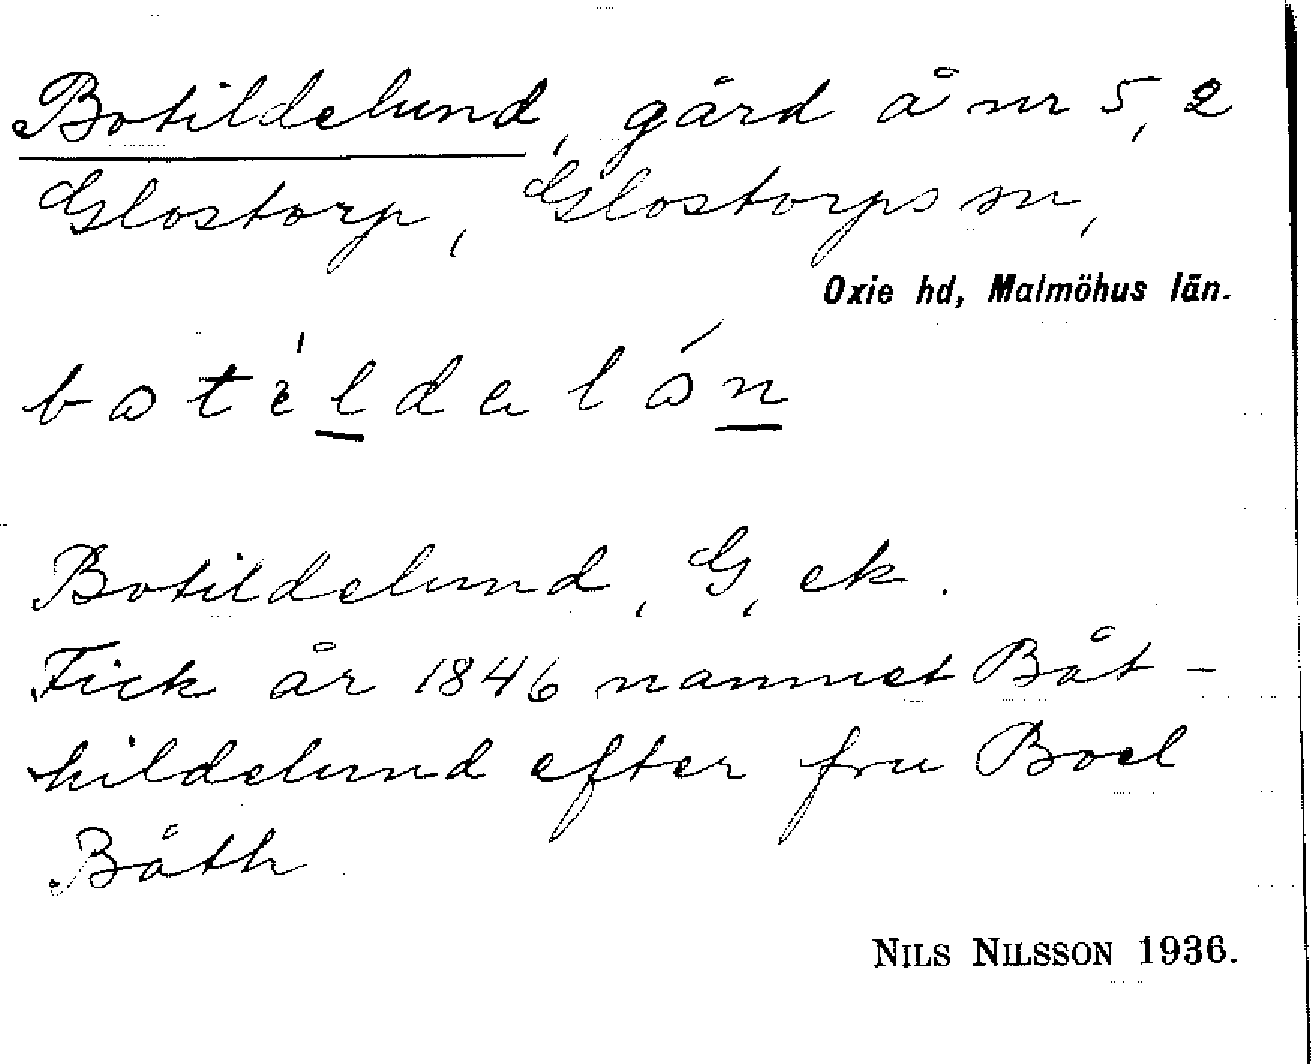 Botildelund, gård å nr 5, 2
Glostorp, Glostorps sn,
Oxie hd, Malmöhus län.
Botildelund, G, ek.
Fick år 1846 namnet Båt-
hildelund efter fru Boel
Båth.
NILS NILSSON 1936.